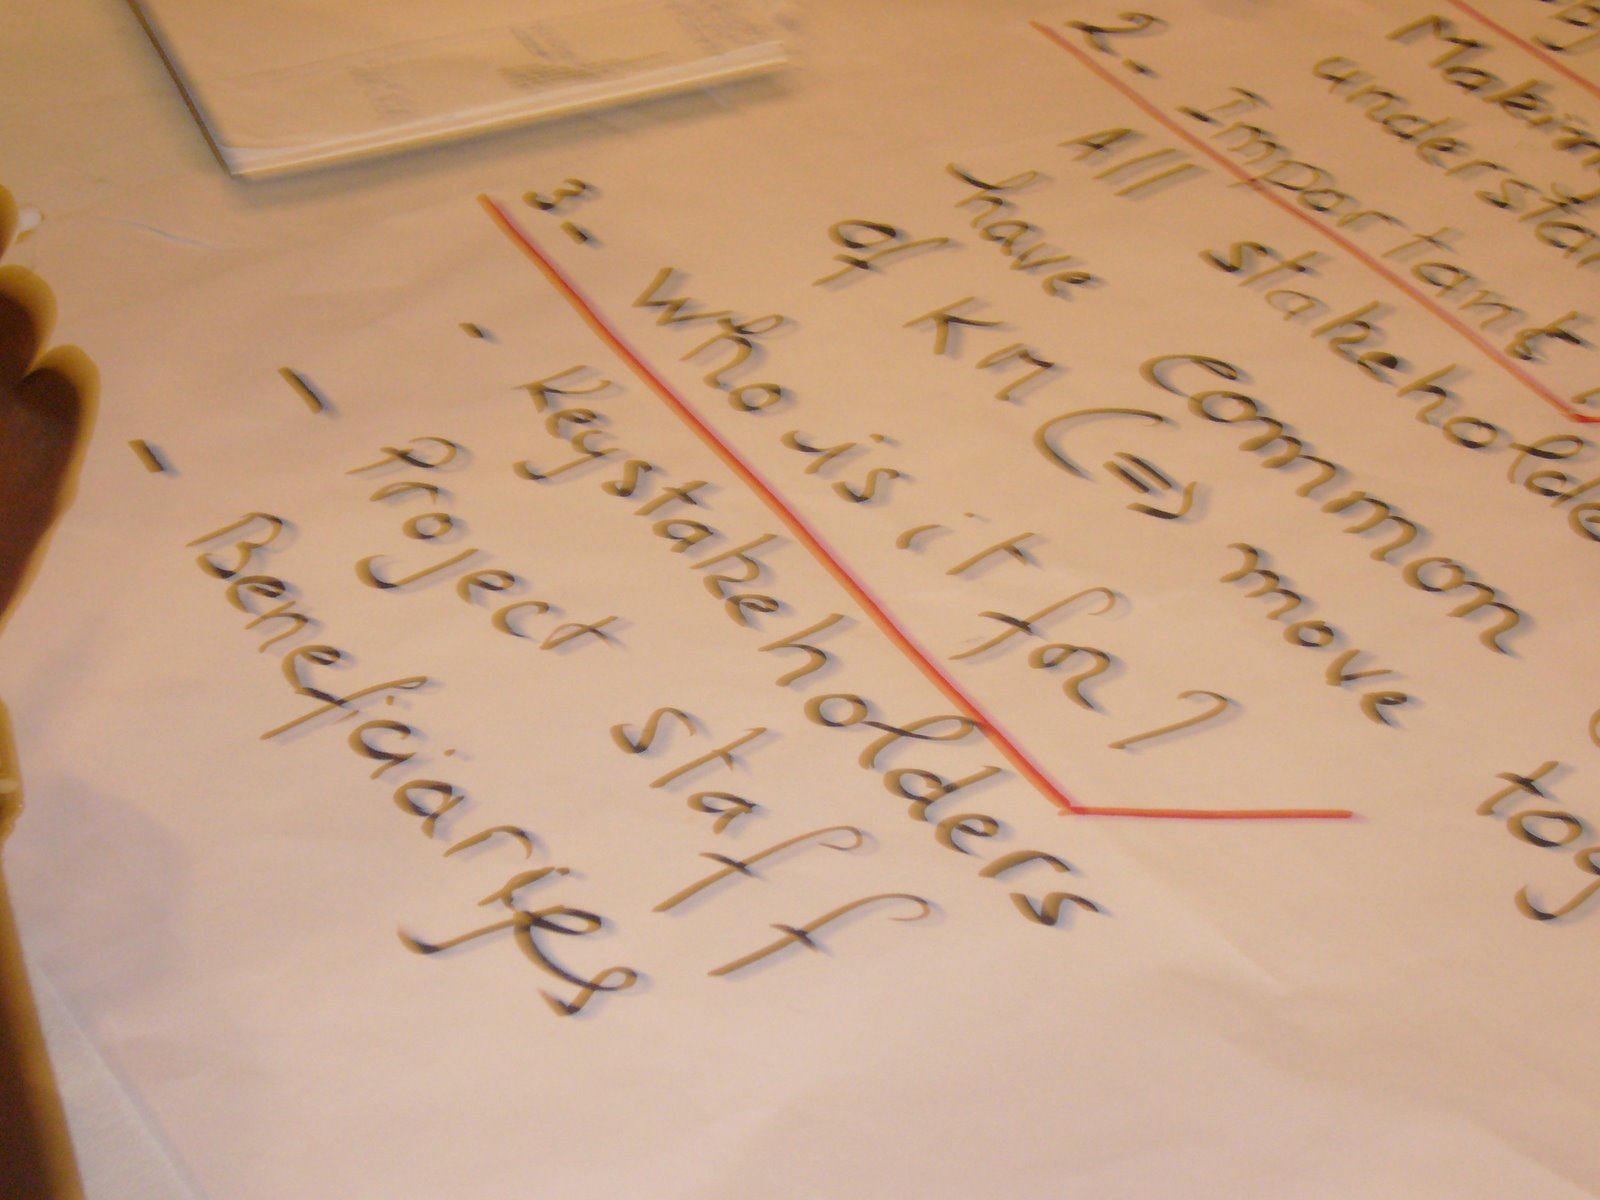 Making
2- Important
All stakeholde
have common
of KM (=> move
tog
3- who is it for?
- Keystakeholders
- Project staff
- Beneficiaries